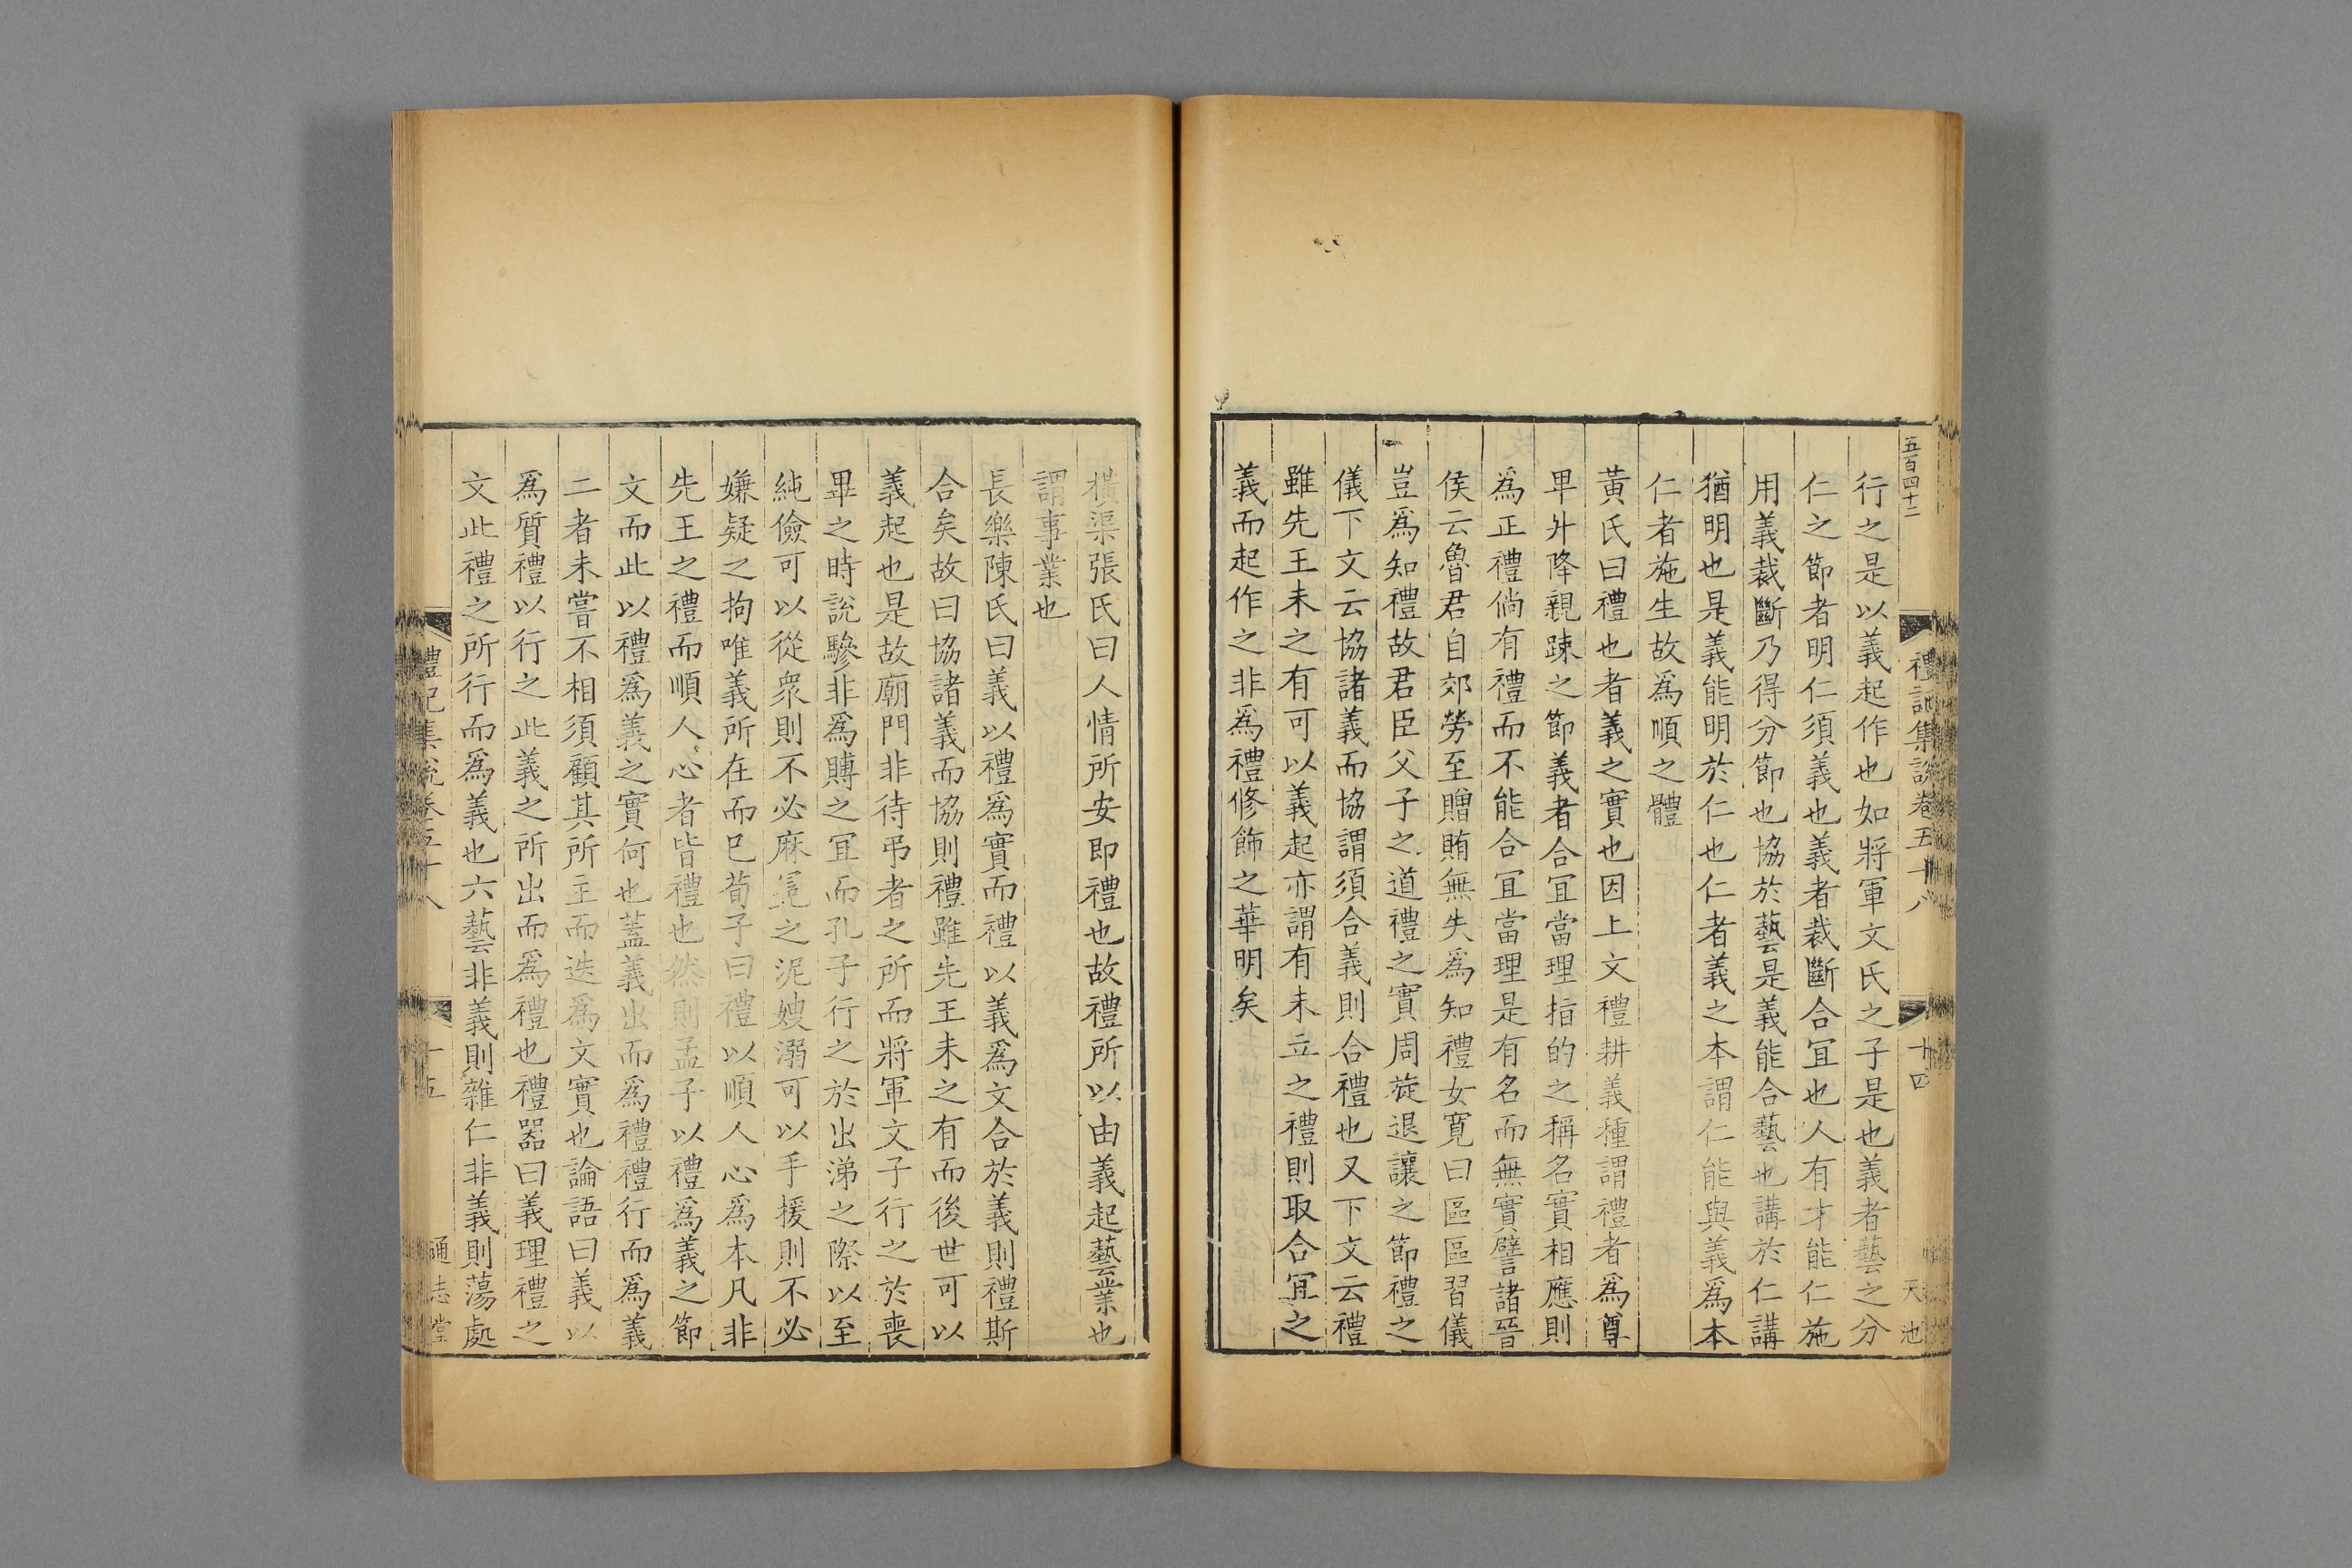 五百四十二
禮記集說卷五十八
十四
天池
行之是以義起作也如將軍文氏之子是也義者藝之分
仁之節者明仁須義也義者裁斷合冝也人有才能仁施
用義裁斷乃得分節也協於藝是義能合藝也講於仁講
猶明也是義能明於仁也仁者義之本謂仁能與義爲本
仁者施生故爲順之體
黃氏曰禮也者義之實也因上文禮耕義種謂禮者爲尊
卑升降親踈之節義者合冝當理指的之稱名實相應則
爲正禮倘有禮而不能合冝當理是有名而無實譬諸晉
侯云魯君自郊勞至贈賄無失爲知禮女寬曰區區習儀
豈爲知禮故君臣父子之道禮之實周旋退讓之節禮之
儀下文云協諸義而協謂須合義則合禮也又下文云禮
雖先王未之有可以義起亦謂有未立之禮則取合冝之
義而起作之非爲禮修飾之華明矣
橫渠張氏曰人情所安即禮也故禮所以由義起藝業也
謂事業也
長樂陳氏曰義以禮爲實而禮以義爲文合於義則禮斯
合矣故曰協諸義而協則禮雖先王未之有而後世可以
義起也是故廟門非待弔者之所而將軍文子行之於喪
畢之時說驂非爲賻之冝而孔子行之於出涕之際以至
純儉可以從衆則不必麻冕之泥嫂溺可以手援則不必
嫌疑之拘唯義所在而已荀子曰禮以順人心爲本凡非
先王之禮而順人心者皆禮也然則孟子以禮爲義之節
文而此以禮爲義之實何也蓋義出而爲禮禮行而爲義
二者未嘗不相須顧其所主而迭爲文實也論語曰義以
爲質禮以行之此義之所出而爲禮也禮器曰義理禮之
文此禮之所行而爲義也六藝非義則雜仁非義則蕩處
禮記集說卷五十八
十五
通志堂